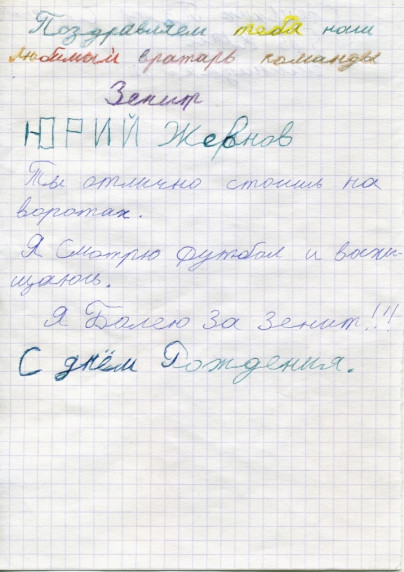 Поздравляем тебя наш
любимый вратарь команды
Зенит
ЮРИЙ Жевнов
Ты отлично стоишь на
воротах.
Я Смотрю футбол и восхи-
щаюсь.
Я Болею За Зенит!!!
С днём Рождения.